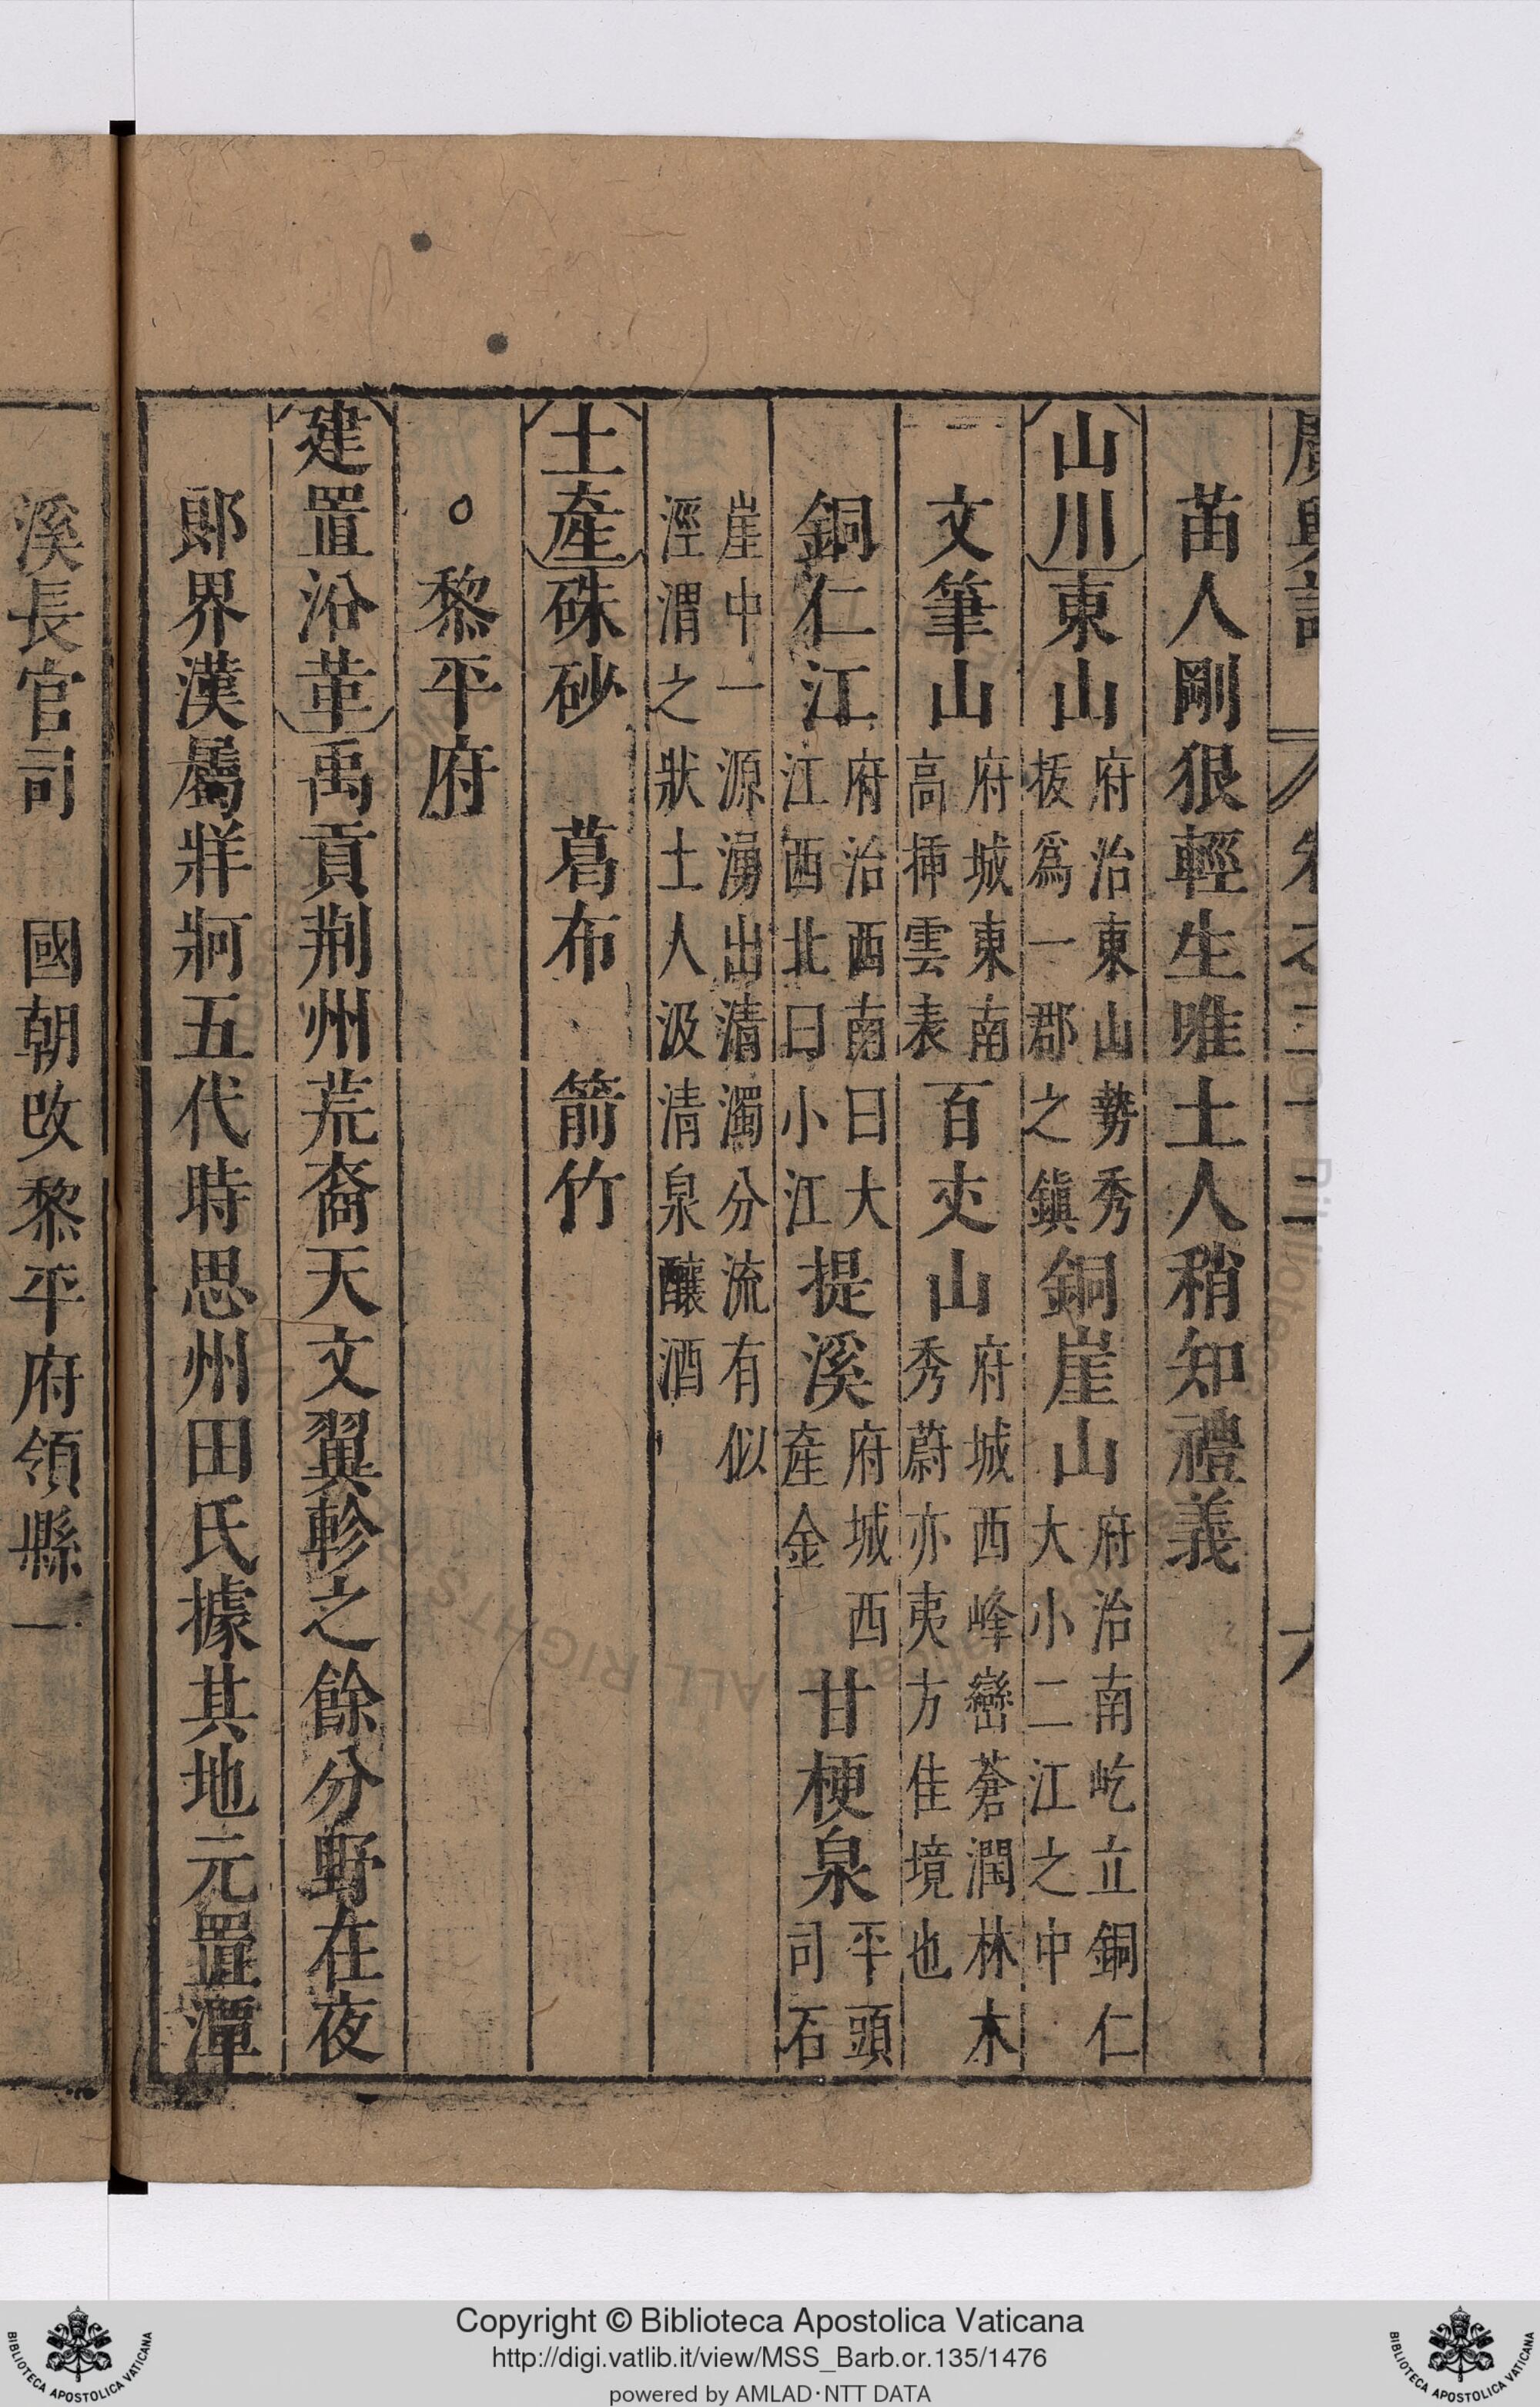 苗人剛狠輕生唯土人稍知禮義
山川東山府治東山勢秀拔爲一郡之鎭銅崖山府治南屹立銅仁大小二江之中
文筆山府城東南高揷雲表百丈山府城西峰巒蒼潤林木秀蔚亦夷方佳境也
銅仁江府治西南曰大江西北曰小江提溪府城西產金甘梗泉平頭司石
崖中一源湧出淸濁分流有似涇渭之狀土人汲淸泉釀酒
土產硃砂 葛布 箭竹
○黎平府
建置沿革禹貢荆州荒裔天文翼軫之餘分野在夜
郞界漢屬牂牁五代時思州田氏據其地元置潭
溪長官司 國朝改黎平府領縣一
Copyright © Biblioteca Apostolica Vaticana
http://digi.vatlib.it/view/MSS_Barb.or.135/1476
powered by AMLAD·NTT DATA
BIBLIOTECA APOSTOLICA VATICANA
BIBLIOTECA APOSTOLICA VATICANA